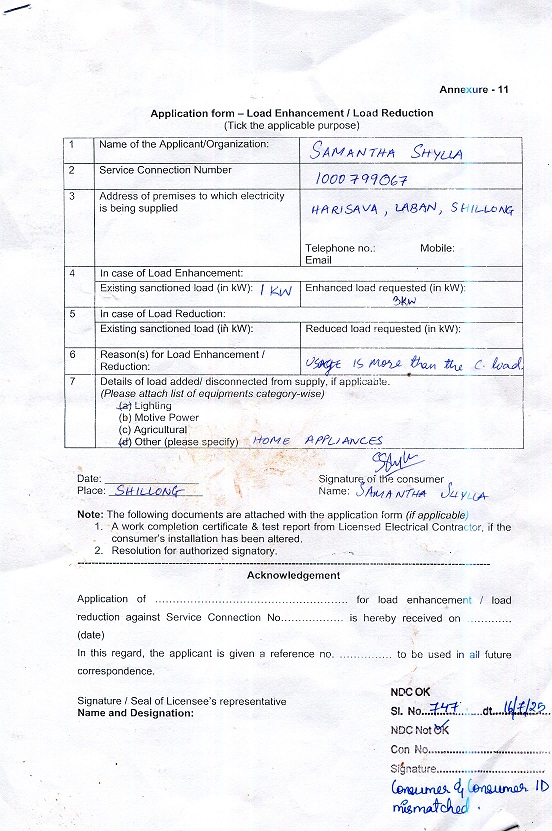 Annexure - 11
Application form – Load Enhancement / Load Reduction
(Tick the applicable purpose)
1 Name of the Applicant/Organization: SAMANTHA SHYLLA
2 Service Connection Number 1000799067
3 Address of premises to which electricity is being supplied HARISAVA, LABAN, SHILLONG
Telephone no.: Mobile:
Email
4 In case of Load Enhancement:
Existing sanctioned load (in kW): 1 KW Enhanced load requested (in kW): 3KW
5 In case of Load Reduction:
Existing sanctioned load (in kW): Reduced load requested (in kW):
6 Reason(s) for Load Enhancement / Reduction: USAGE IS more than the C. load
7 Details of load added/ disconnected from supply, if applicable.
(Please attach list of equipments category-wise)
(a) Lighting
(b) Motive Power
(c) Agricultural
(d) Other (please specify) HOME APPLIANCES
Date:
Signature of the consumer
Place: SHILLONG Name: SAMANTHA SHYLLA
Note: The following documents are attached with the application form (if applicable)
1. A work completion certificate & test report from Licensed Electrical Contractor, if the
consumer's installation has been altered.
2. Resolution for authorized signatory.
Acknowledgement
Application of ................................................ for load enhancement / load
reduction against Service Connection No................ is hereby received on ............
(date)
In this regard, the applicant is given a reference no. .............. to be used in all future
correspondence.
Signature / Seal of Licensee's representative
Name and Designation:
NDC OK
Sl. No. 747 dt. 16/7/25
NDC Not OK
Con No.
Signature
Consumer & Consumer ID
mismatched.